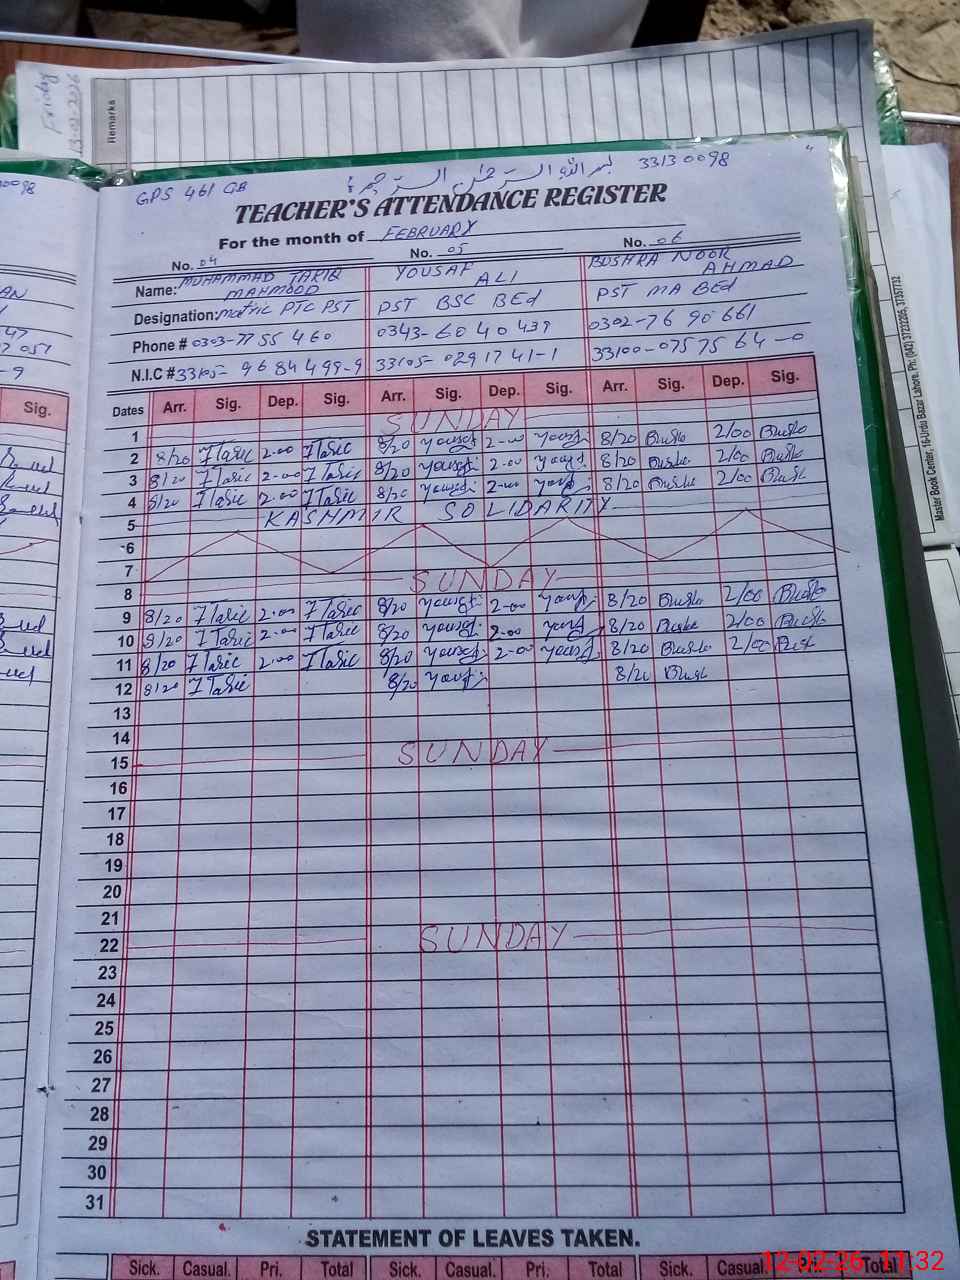 Friday
Remarks
GPS 461 GB
33130098
TEACHER'S ATTENDANCE REGISTER
For the month of FEBRUARY
No. 04 No. 05 No. 06
Name: MUHAMMAD TARIQ MAHMOOD YOUSAF ALI BUSHRA NOOR AHMAD
Designation: Matric PTC PST PST BSC BEd PST MA BEd
Phone # 0303-7755460 0343-6040439 0302-7690661
N.I.C # 33105-9684499-9 33105-0291741-1 33100-0757564-0
Dates Arr. Sig. Dep. Sig. Arr. Sig. Dep. Sig. Arr. Sig. Dep. Sig.
1 SUNDAY
2 8/20 Taric 2-00 Taric 8/20 Yousaf 2-00 Yousaf 8/20 Bushr 2/00 Bushr
3 8/20 Taric 2-00 Taric 8/20 Yousaf 2-00 Yousaf 8/20 Bushr 2/00 Bushr
4 8/20 Taric 2-00 Taric 8/20 Yousaf 2-00 Yousaf 8/20 Bushr 2/00 Bushr
5 KASHMIR SOLIDARITY
6
7
8 SUNDAY
9 8/20 Taric 2-00 Taric 8/20 Yousaf 2-00 Yousaf 8/20 Bushr 2/00 Bushr
10 8/20 Taric 2-00 Taric 8/20 Yousaf 2-00 Yousaf 8/20 Bushr 2/00 Bushr
11 8/20 Taric 2-00 Taric 8/20 Yousaf 2-00 Yousaf 8/20 Bushr 2/00 Bushr
12 8/20 Taric 8/20 Yousaf 8/20 Bushr
13
14
15 SUNDAY
16
17
18
19
20
21
22 SUNDAY
23
24
25
26
27
28
29
30
31
STATEMENT OF LEAVES TAKEN.
Sick. Casual. Pri. Total Sick. Casual. Pri. Total Sick. Casual. Total
Master Book Center, 16-Urdu Bazar Lahore. Ph: (042) 37232205, 37357732
Sig.
12-02-26 11:32